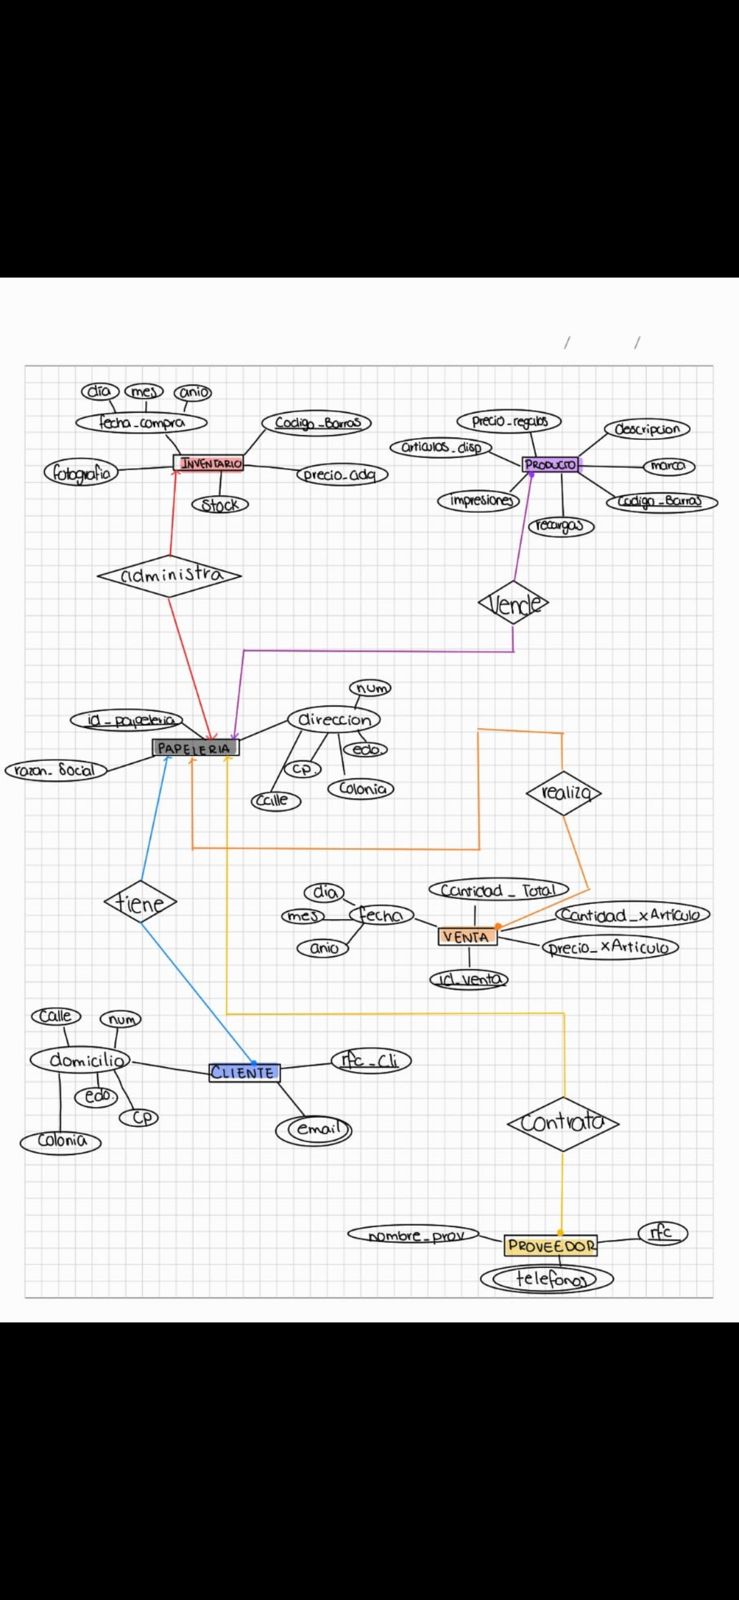 día mes anio
fecha_compra
Codigo_Barras
INVENTARIO
fotografia
precio_adq
Stock
precio_regalos
descripcion
articulos_disp
PRODUCTO
marca
impresiones
Codigo_Barras
recargas
administra
Vende
num
id_papeleria
direccion
PAPELERIA
edo.
razon_Social
cp.
Colonia
Calle
realiza
tiene
dia
Cantidad_Total
mes
fecha
Cantidad_xArticulo
VENTA
anio
precio_xArticulo
id_venta
Calle
num
domicilio
rfc_cli
CLIENTE
edo.
cp
Colonia
email
Contrata
nombre_prov
rfc
PROVEEDOR
telefonos